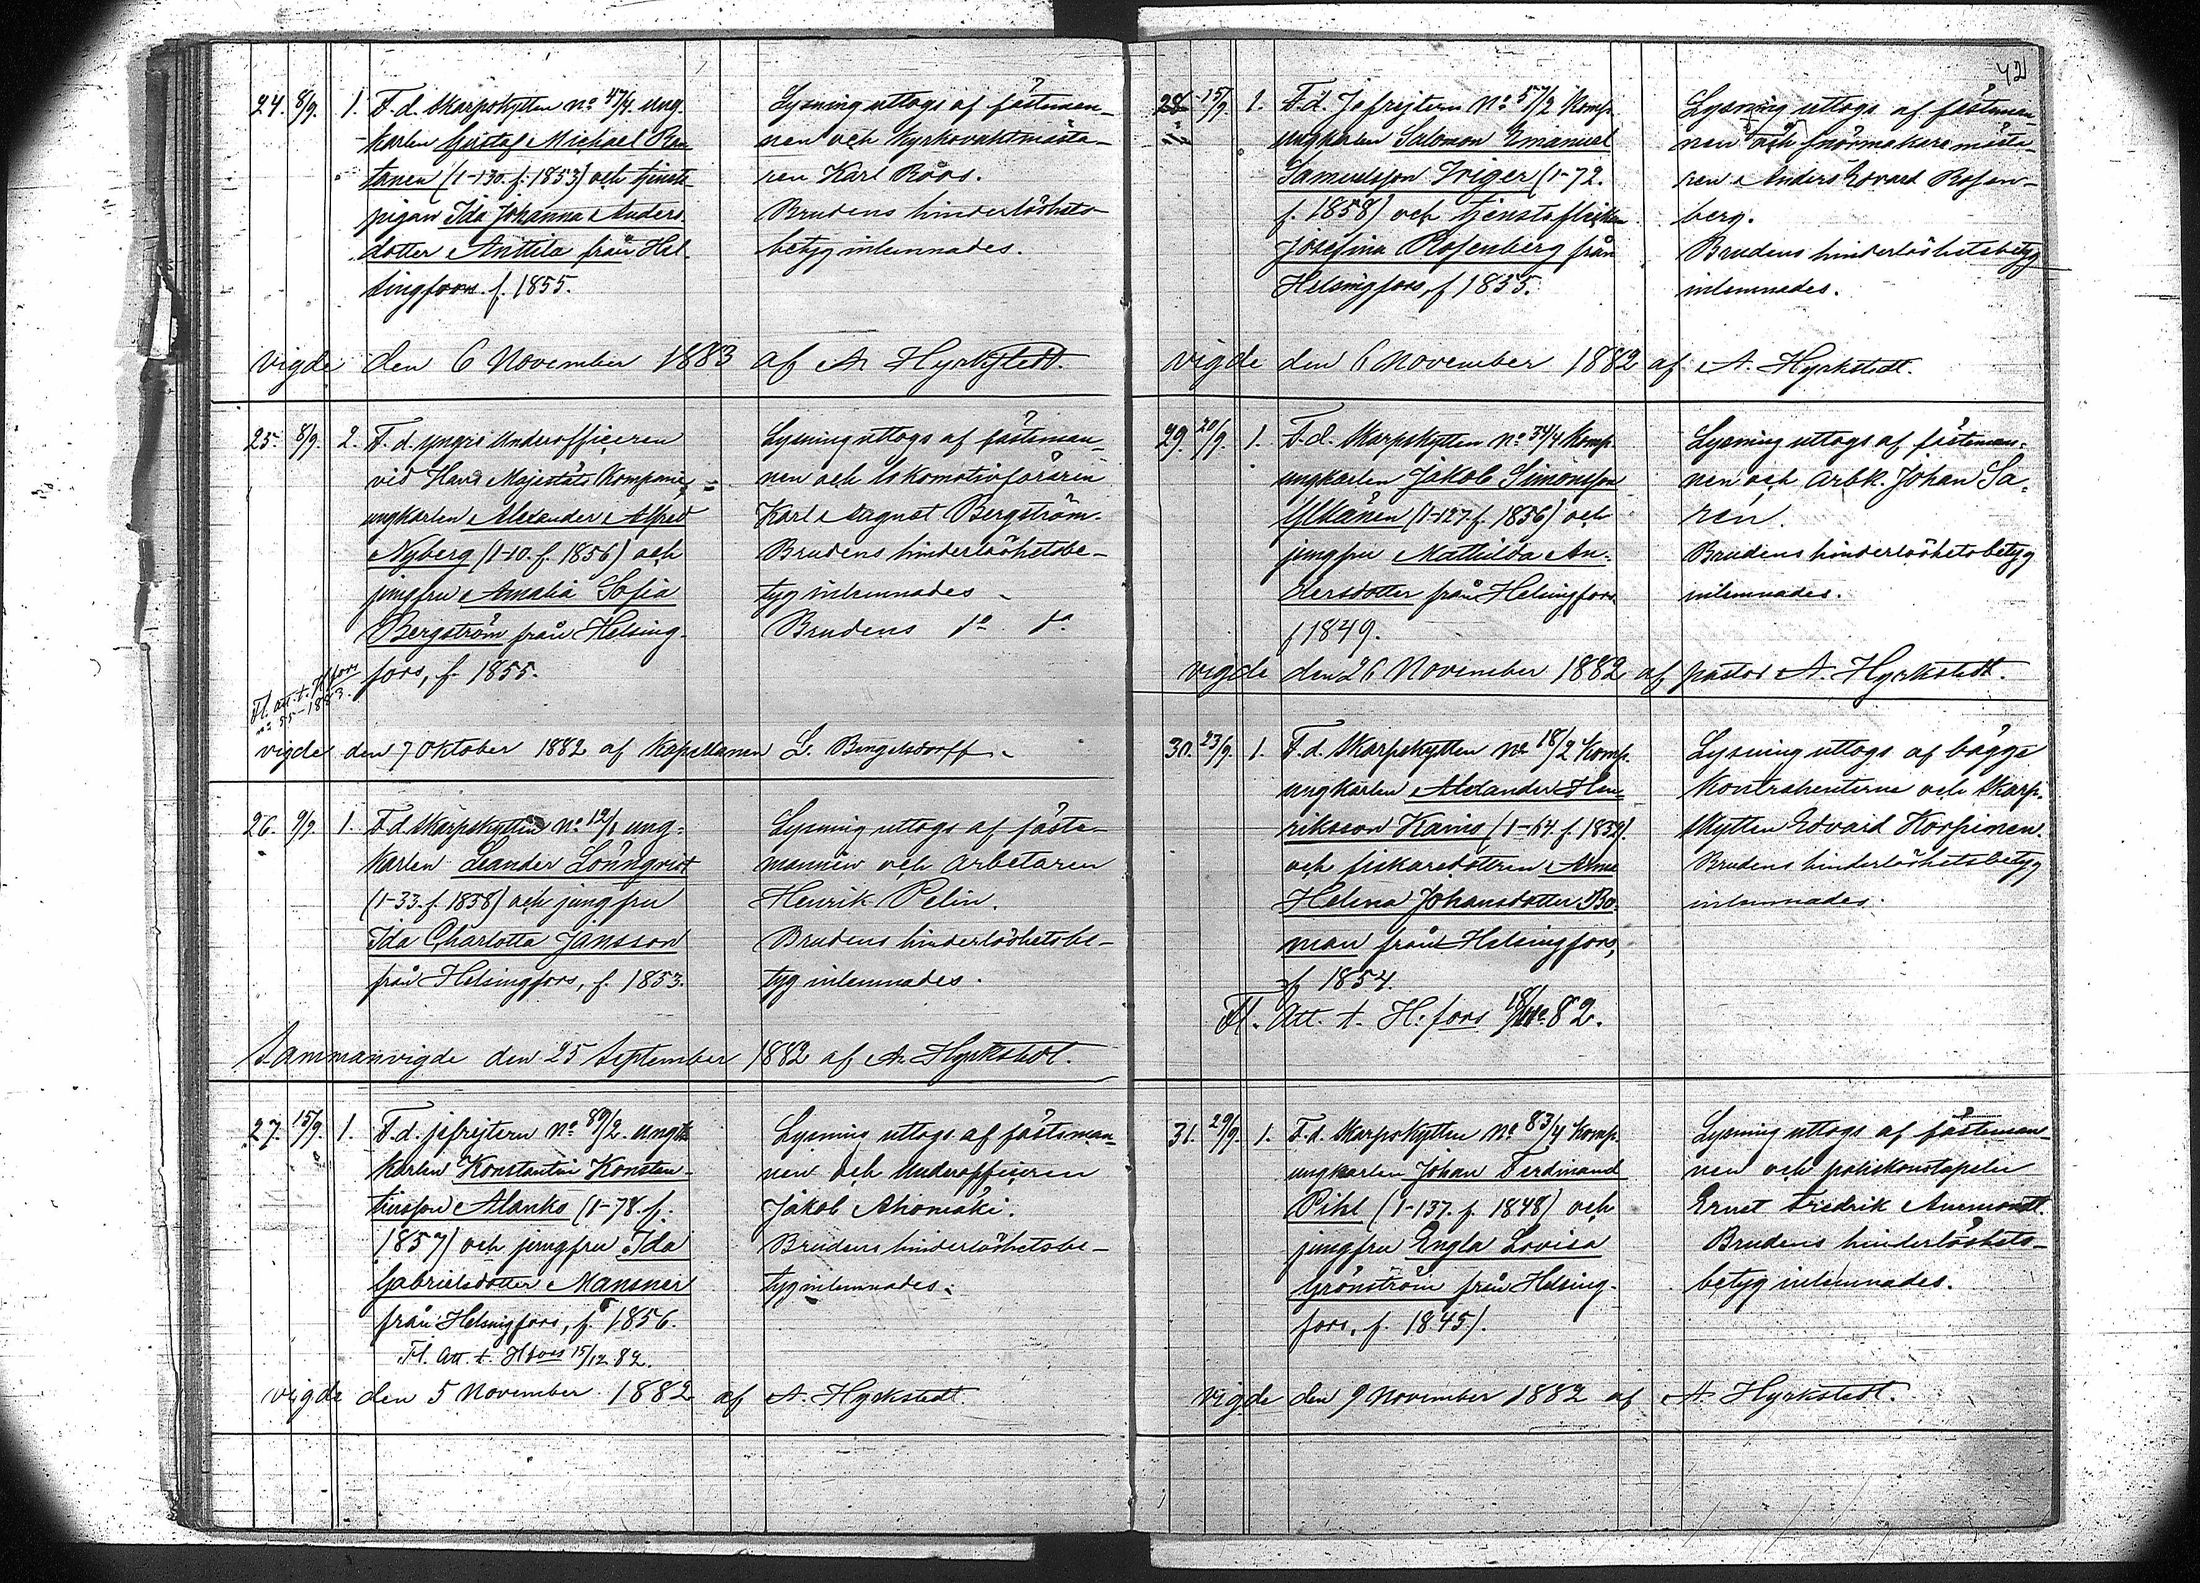 24. 8/9. 1. F. d. skarpskytten No 47/4. ung-
karlen Gustaf Michael Ran
tanen (1-130. f. 1853) och tjenste
pigan Ida Johanna Anders
dotter Anttila från Hel
singfors. f. 1855.
Lysning uttogs af fästeman-
nen och Kyrkovaktmästa-
ren Karl Röös.
Brudens hinderlöshets-
betyg inlemnades.
vigde den 6 November 1883 af A. Hyrkstedt.
25. 8/9. 2. F. d. yngre Underofficeren
vid Hans Majestäts Kompani,
ungkarlen Alexander Alfred
Nyberg (1-10. f. 1856) och
jungfru Amalia Sofia
Bergström från Helsing-
fors, f. 1855.
Lysning uttogs af fästeman-
nen och lokomotivföraren
Karl August Bergström.
Brudens hinderlöshetsbe-
tyg inlemnades
Brudens do do
Fl. att. t. Hfors
No 55-1883.
vigde den 7 Oktober 1882 af Kapellanen L. Bengelsdorff.
26. 9/9. 1. F. d. Skarpskytten No 12/1 ung-
karlen Leander Lönnqvist
(1-33. f. 1858) och jungfru
Ida Charlotta Jansson
från Helsingfors, f. 1853.
Lysning uttogs af fäste-
mannen och arbetaren
Henrik Pelin.
Brudens hinderlöshetsbe-
tyg inlemnades.
Sammanvigde den 25 September 1882 af A. Hyrkstedt.
27. 15/9. 1. F. d. jefrejtern No 89/2. ung
karlen Konstantin Konstan-
tinsson Alanko (1-78. f.
1857) och jungfru Ida
Gabrielsdotter Mansner
från Helsingfors, f. 1856.
Fl. Att. t. Hfors 15/12 82.
Lysning uttogs af fästeman-
nen och Underofficeren
Jakob Ahomäki.
Brudens hinderlöshetsbe-
tyg inlemnades.
vigde den 5 November 1882 af A. Hyrkstedt.
42
28 15/9 1. F. d. Jefrejtern No 57/2 Komp.
ungkarlen Salomon Emanuel
Samuelsson Iriger (1-72.
f. 1858) och tjensteflickan
Josefina Rosenberg från
Helsingfors, f 1855.
Lysning uttogs af fästeman-
nen och snörmakaremäste-
ren Anders Edvard Rosen-
berg.
Brudens hinderlöshetsbetyg
inlemnades.
vigde den 6 November 1882 af A. Hyrkstedt.
29. 20/9. 1. F. d. Skarpskytten No 34/4 Komp.
ungkarlen Jakob Simonsson
Ylhänen (1-127. f. 1856) och
jungfru Mathilda An-
dersdotter från Helsingfors.
f 1849.
Lysning uttogs af fästeman-
nen och Arbk. Johan Sa-
rén.
Brudens hinderlöshetsbetyg
inlemnades.
vigde den 26 November 1882 af pastor A. Hyrkstedt.
30. 23/9. 1. F. d. Skarpskytten No 18/2 Komp.
ungkarlen Alexander Hen-
riksson Kaino (1-64. f. 1852).
och fiskaredottren Alma
Helena Johansdotter Bo-
man från Helsingfors,
f 1854.
Fl. Att. t. H:fors 82.
Lysning uttogs af bägge
Kontrahenterne och Skarp-
skytten Edvard Korpinen.
Brudens hinderlöshetsbetyg
inlemnades.
31. 29/9. 1. F. d. Skarpskytten No 83/4 Komp.
ungkarlen Johan Ferdinand
Pihl (1-137. f. 1848) och
jungfru Engla Lovisa
Grönström från Helsing-
fors, f. 1845).
Lysning uttogs af fästeman-
nen och poliskonstapeln
Ernst Fredrik
Brudens hinderlöshets-
betyg inlemnades.
vigde den 9 November 1882 af A. Hyrkstedt.